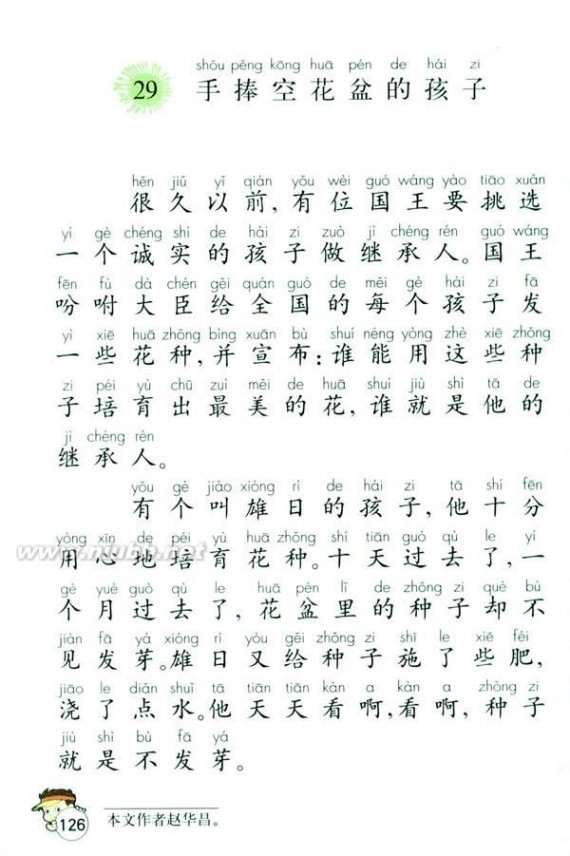 shǒu pěng kōng huā pén de hái zi
29 手捧空花盆的孩子
hěn jiǔ yǐ qián yǒu wèi guó wáng yào tiāo xuǎn
很久以前,有位国王要挑选
yí gè chéng shí de hái zi zuò jì chéng rén guó wáng
一个诚实的孩子做继承人。国王
fēn fù dà chén gěi quán guó de měi gè hái zi fā
吩咐大臣给全国的每个孩子发
yì xiē huā zhǒng bìng xuān bù shuí néng yòng zhè xiē zhǒng
一些花种,并宣布:谁能用这些种
zi péi yù chū zuì měi de huā shuí jiù shì tā de
子培育出最美的花,谁就是他的
jì chéng rén
继承人。
yǒu gè jiào xióng rì de hái zi tā shí fēn
有个叫雄日的孩子,他十分
yòng xīn de péi yù huā zhǒng shí tiān guò qù le yí
用心地培育花种。十天过去了,一
gè yuè guò qù le huā pén lǐ de zhǒng zi què bú
个月过去了,花盆里的种子却不
jiàn fā yá xióng rì yòu gěi zhǒng zi shī le xiē féi
见发芽。雄日又给种子施了些肥,
jiāo le diǎn shuǐ tā tiān tiān kàn a kàn a zhǒng zi
浇了点水。他天天看啊,看啊,种子
jiù shì bù fā yá
就是不发芽。
126 本文作者赵华昌。